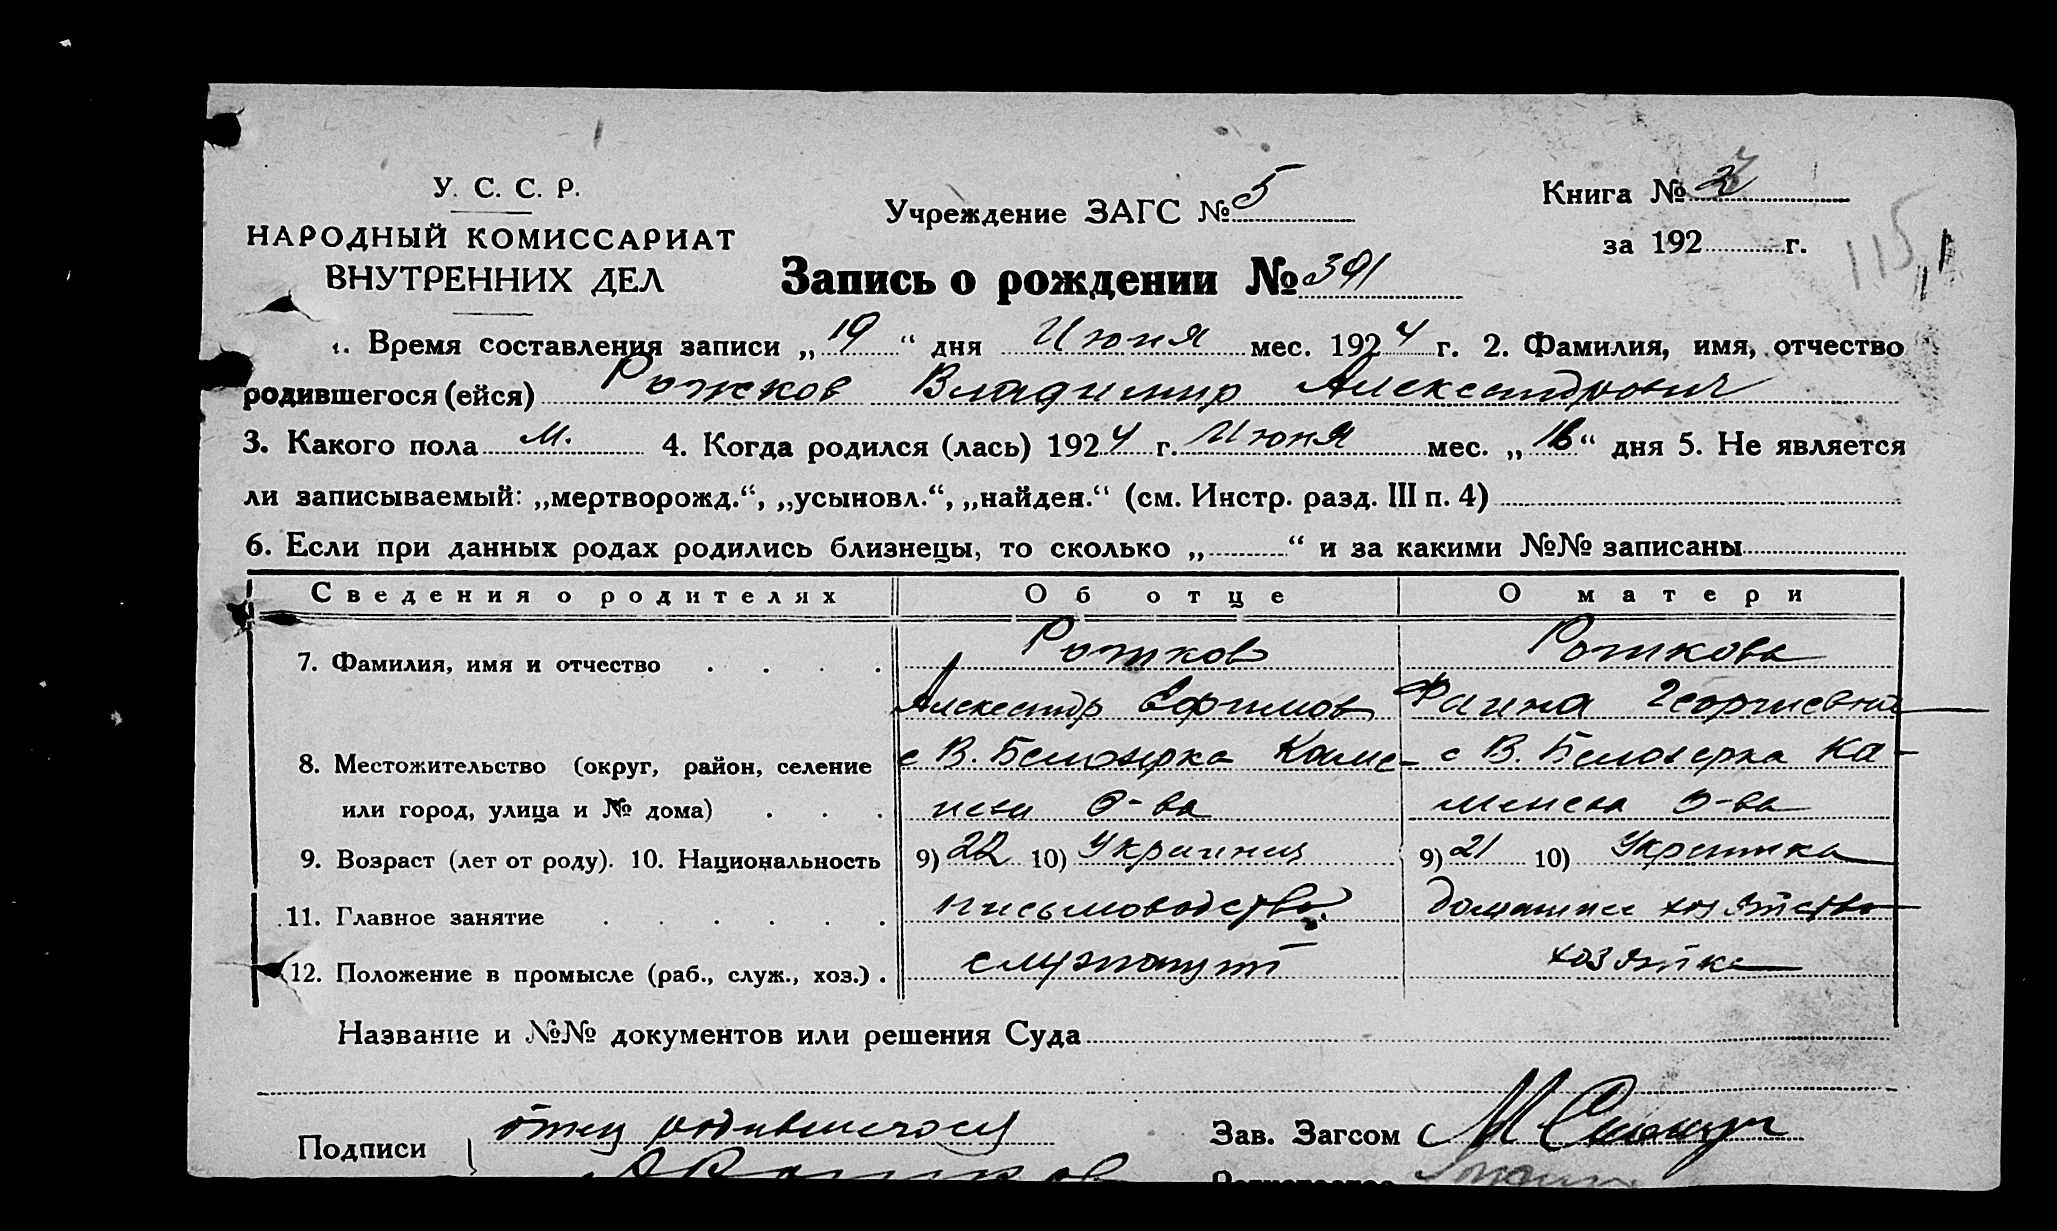 У. С. С. Р.
НАРОДНЫЙ КОМИССАРИАТ
ВНУТРЕННИХ ДЕЛ
Учреждение ЗАГС № 5
Книга № 2
за 192 г.
115
Запись о рождении № 391
1. Время составления записи „19“ дня Июня мес. 1924 г. 2. Фамилия, имя, отчество
родившегося (ейся) Рожков Владимир Александрович
3. Какого пола м. 4. Когда родился (лась) 1924 г. Июня мес. „16“ дня 5. Не является
ли записываемый: „мертворожд.“, „усыновл.“, „найден.“ (см. Инстр. разд. III п. 4)
6. Если при данных родах родились близнецы, то сколько „ “ и за какими №№ записаны
Сведения о родителях Об отце О матери
7. Фамилия, имя и отчество Рожков Рожкова
Александр Ефимов Фаина Георгиевна
8. Местожительство (округ, район, селение с В. Белозерка Каме- с В. Белозерка Ка-
или город, улица и № дома) менск
9. Возраст (лет от роду). 10. Национальность 9) 22 10) Украинец 9) 21 10) Украинка
11. Главное занятие письмоводство домашнее хозяйство
12. Положение в промысле (раб., служ., хоз.) служащий хозяйка
Название и №№ документов или решения Суда
Подписи отец родившегося Зав. Загсом
А Рожков